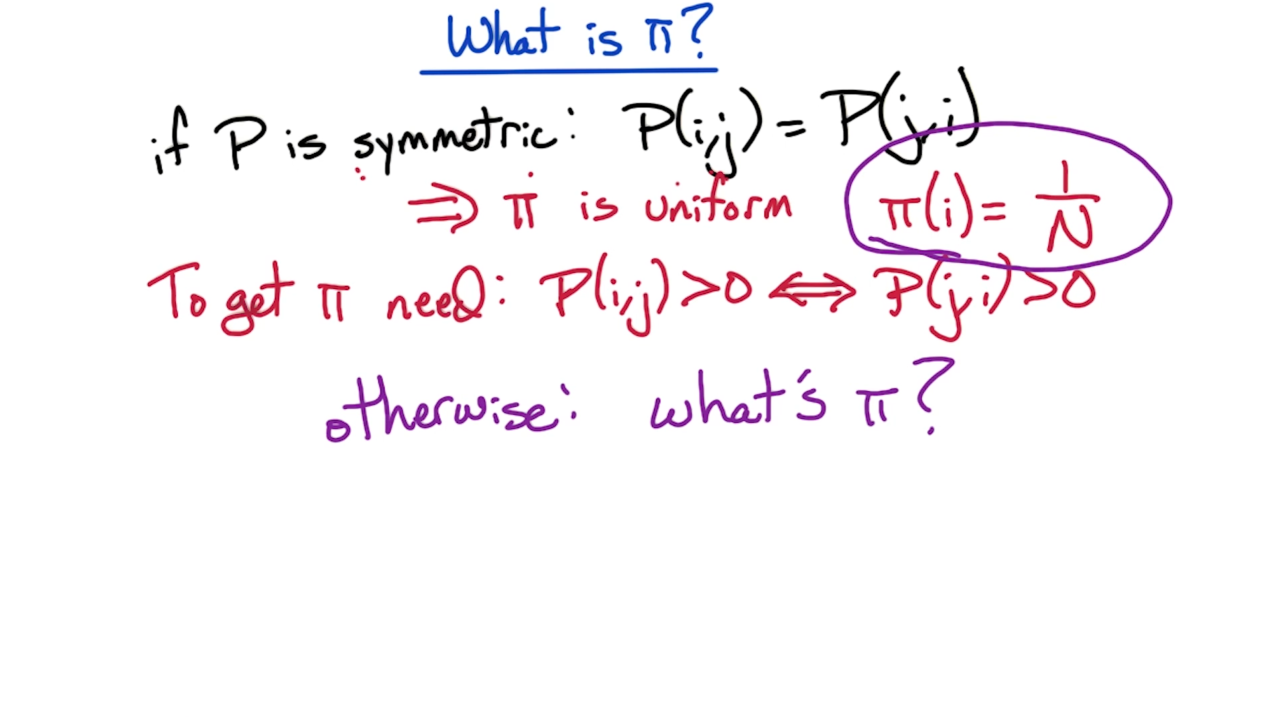 What is π?
if P is symmetric: P(i,j) = P(j,i)
⇒ π is uniform π(i) = 1/N
To get π need: P(i,j) > 0 ⟺ P(j,i) > 0
otherwise: what's π?